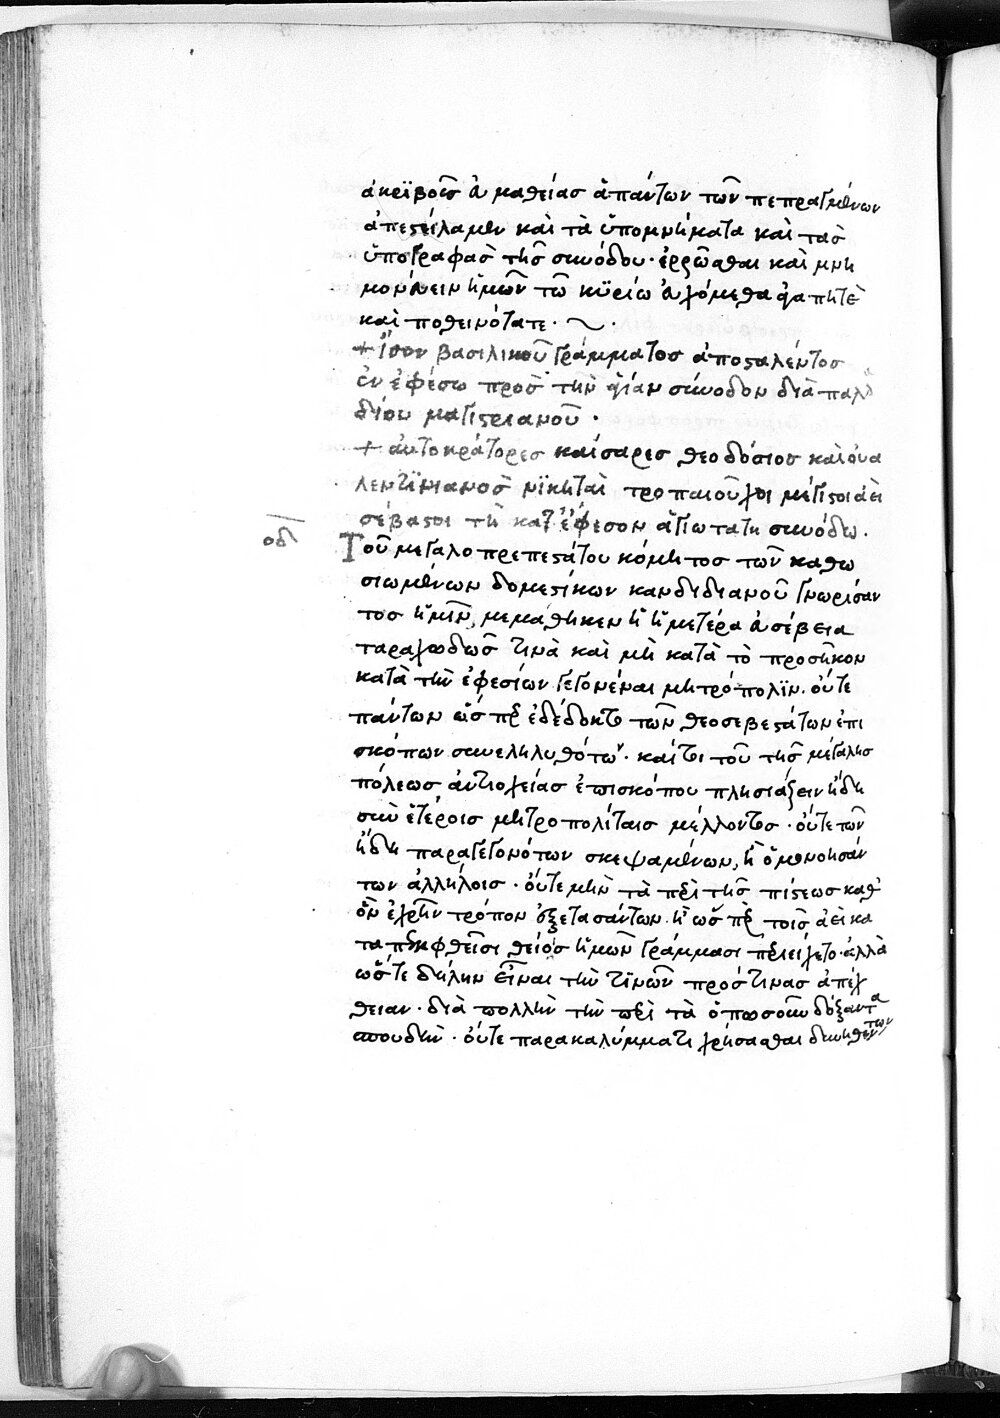 ἀκρϊβοῦς εὐμαθείας ἁπάντων τῶν πεπραγμένων
ἀπεστείλαμεν καὶ τὰ ὑπομνήματα καὶ τὰς
ὑπογραφὰς τῆς συνόδου· ἐρρῶσθαι καὶ μνη
μονεύειν ἡμῶν τῶ κϋρίω εὐχόμεθα ἀγαπητὲ
καὶ ποθεινότατε·
+ ἴσον βασιλικοῦ γράμματος ἀποσταλέντος
ἐν ἐφέσω πρὸς τὴν ἁγίαν σύνοδον διὰ παλλα
δίου μαγιστριανοῦ·
+ αὐτοκράτορες καίσαρες θεοδόσιος καὶ οὐα
λεντινιανὸς νϊκηταὶ τροπαιοῦχοι μέγιστοι ἀεὶ
σέβαστοι τῆ κατ' ἔφεσον ἁγιωτάτη συνόδω.
οδ
Τοῦ μεγαλοπρεπεστάτου κόμητος τῶν καθω
σιωμένων δομεστίκων κανδιδιανοῦ γνωρίσαν
τος ἡμῖν, μεμάθηκεν ἡ ἡμετέρα εὐσέβεια
ταραχωδῶς τινὰ καὶ μὴ κατὰ τὸ προσῆκον
κατὰ τὴν ἐφεσίων γεγονέναι μητρόπολϊν· οὔτε
πάντων ὥσπερ ἐδέδοκτο τῶν θεοσεβεστάτων ἐπι
σκόπων συνεληλυθότων· καίτοι τοῦ τῆς μεγάλης
πόλεως ἀντιοχείας ἐπισκόπου πλησιάζειν ἤδη
σὺν ἑτέροις μητροπολίταις μέλλοντος· οὔτε τῶν
ἤδη παραγεγονότων σκεψαμένων, ἢ ὁμονοησάν
των ἀλλήλοις· οὔτε μὴν τὰ περὶ τῆς πίστεως καθ'
ὃν ἐχρῆν τρόπον ἐξετασάντων ἢ ὥσπερ τοῖς ἀεὶ κα
ταπεμφθεῖσι θείοις ἡμῶν γράμμασι περιείχετο· ἀλλὰ
ὥστε δήλην εἶναι τὴν τινῶν πρός τινας ἀπέχ
θειαν· διὰ πολλὴν τὴν περὶ τὰ ὁπωσοῦν δόξαντα
σπουδὴν· οὔτε παρακαλύμματι χρήσασθαι δυνηθέντων